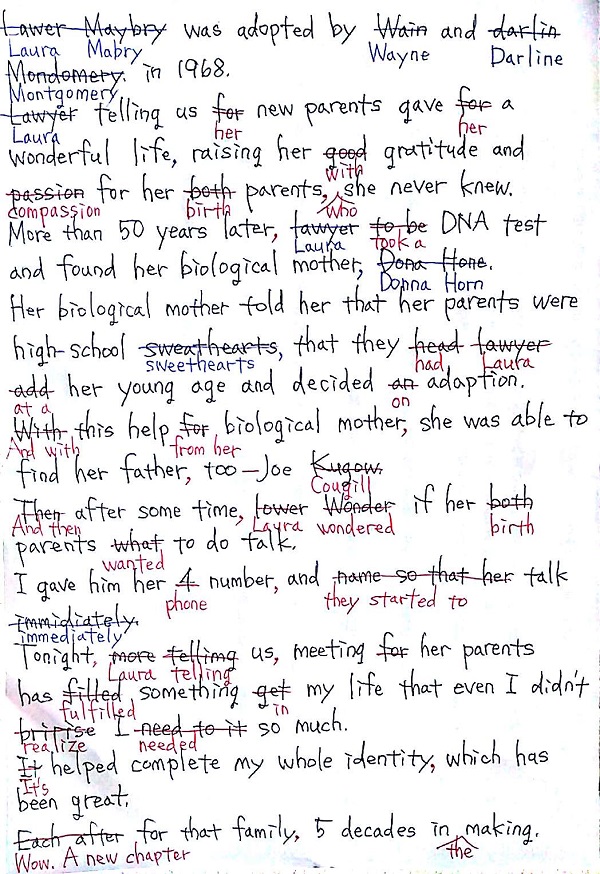 Lawer Maybry was adopted by Wain and darlin
Laura Mabry Wayne Darline
Mondomery. in 1968.
Montgomery
Lawyer telling us for new parents gave for a
Laura her her
wonderful life, raising her good gratitude and
with
passion for her both parents, she never knew.
compassion birth who
More than 50 years later, lawyer to be DNA test
Laura took a
and found her biological mother, Dona Hone.
Donna Horn
Her biological mother told her that her parents were
high-school sweathearts, that they head lawyer
sweethearts had Laura
add her young age and decided an adaption.
at a on
With this help for biological mother, she was able to
And with from her
find her father, too - Joe Kugow.
Cougill
Then after some time, lower Wonder if her both
And then Laura wondered birth
parents what to do talk.
wanted
I gave him her 4 number, and name so that her talk
phone they started to
immidiately.
immediately
Tonight, more tellimg us, meeting for her parents
Laura telling
has filled something get my life that even I didn't
fulfilled in
bripise I need to it so much.
realize needed
It helped complete my whole identity, which has
It's
been great.
Each after for that family, 5 decades in making.
Wow. A new chapter the